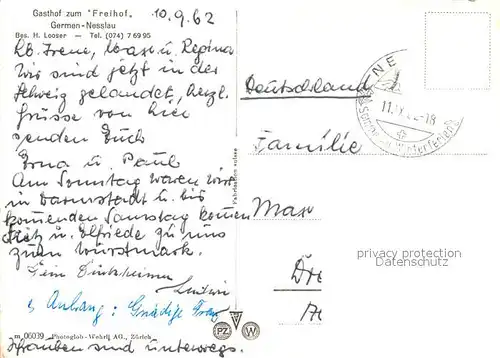 Gasthof zum "Freihof"
Germen-Nesslau
Bes. H. Looser — Tel. (074) 7 69 95
10.9.62
Lb. Irene, Max u. Regina
Wir sind jetzt in der
Schweiz gelandet, herzl.
Grüsse von hier
senden Euch
Erna u. Paul
Am Sonntag waren wir
in Darmstadt u. bis
kommenden Samstag kommen
Fritz u. Elfriede zu uns
zum Wurstmark.
Ludwi
Anhang: Gnädige Frau
m 06039 Photoglob-Wehrli AG., Zürich
Schrauben sind unterwegs.
PZ
W
Deutschland
Familie
Max
NE
11. IX. 62-18
Sommer- und Winterferien
privacy protection
Datenschutz